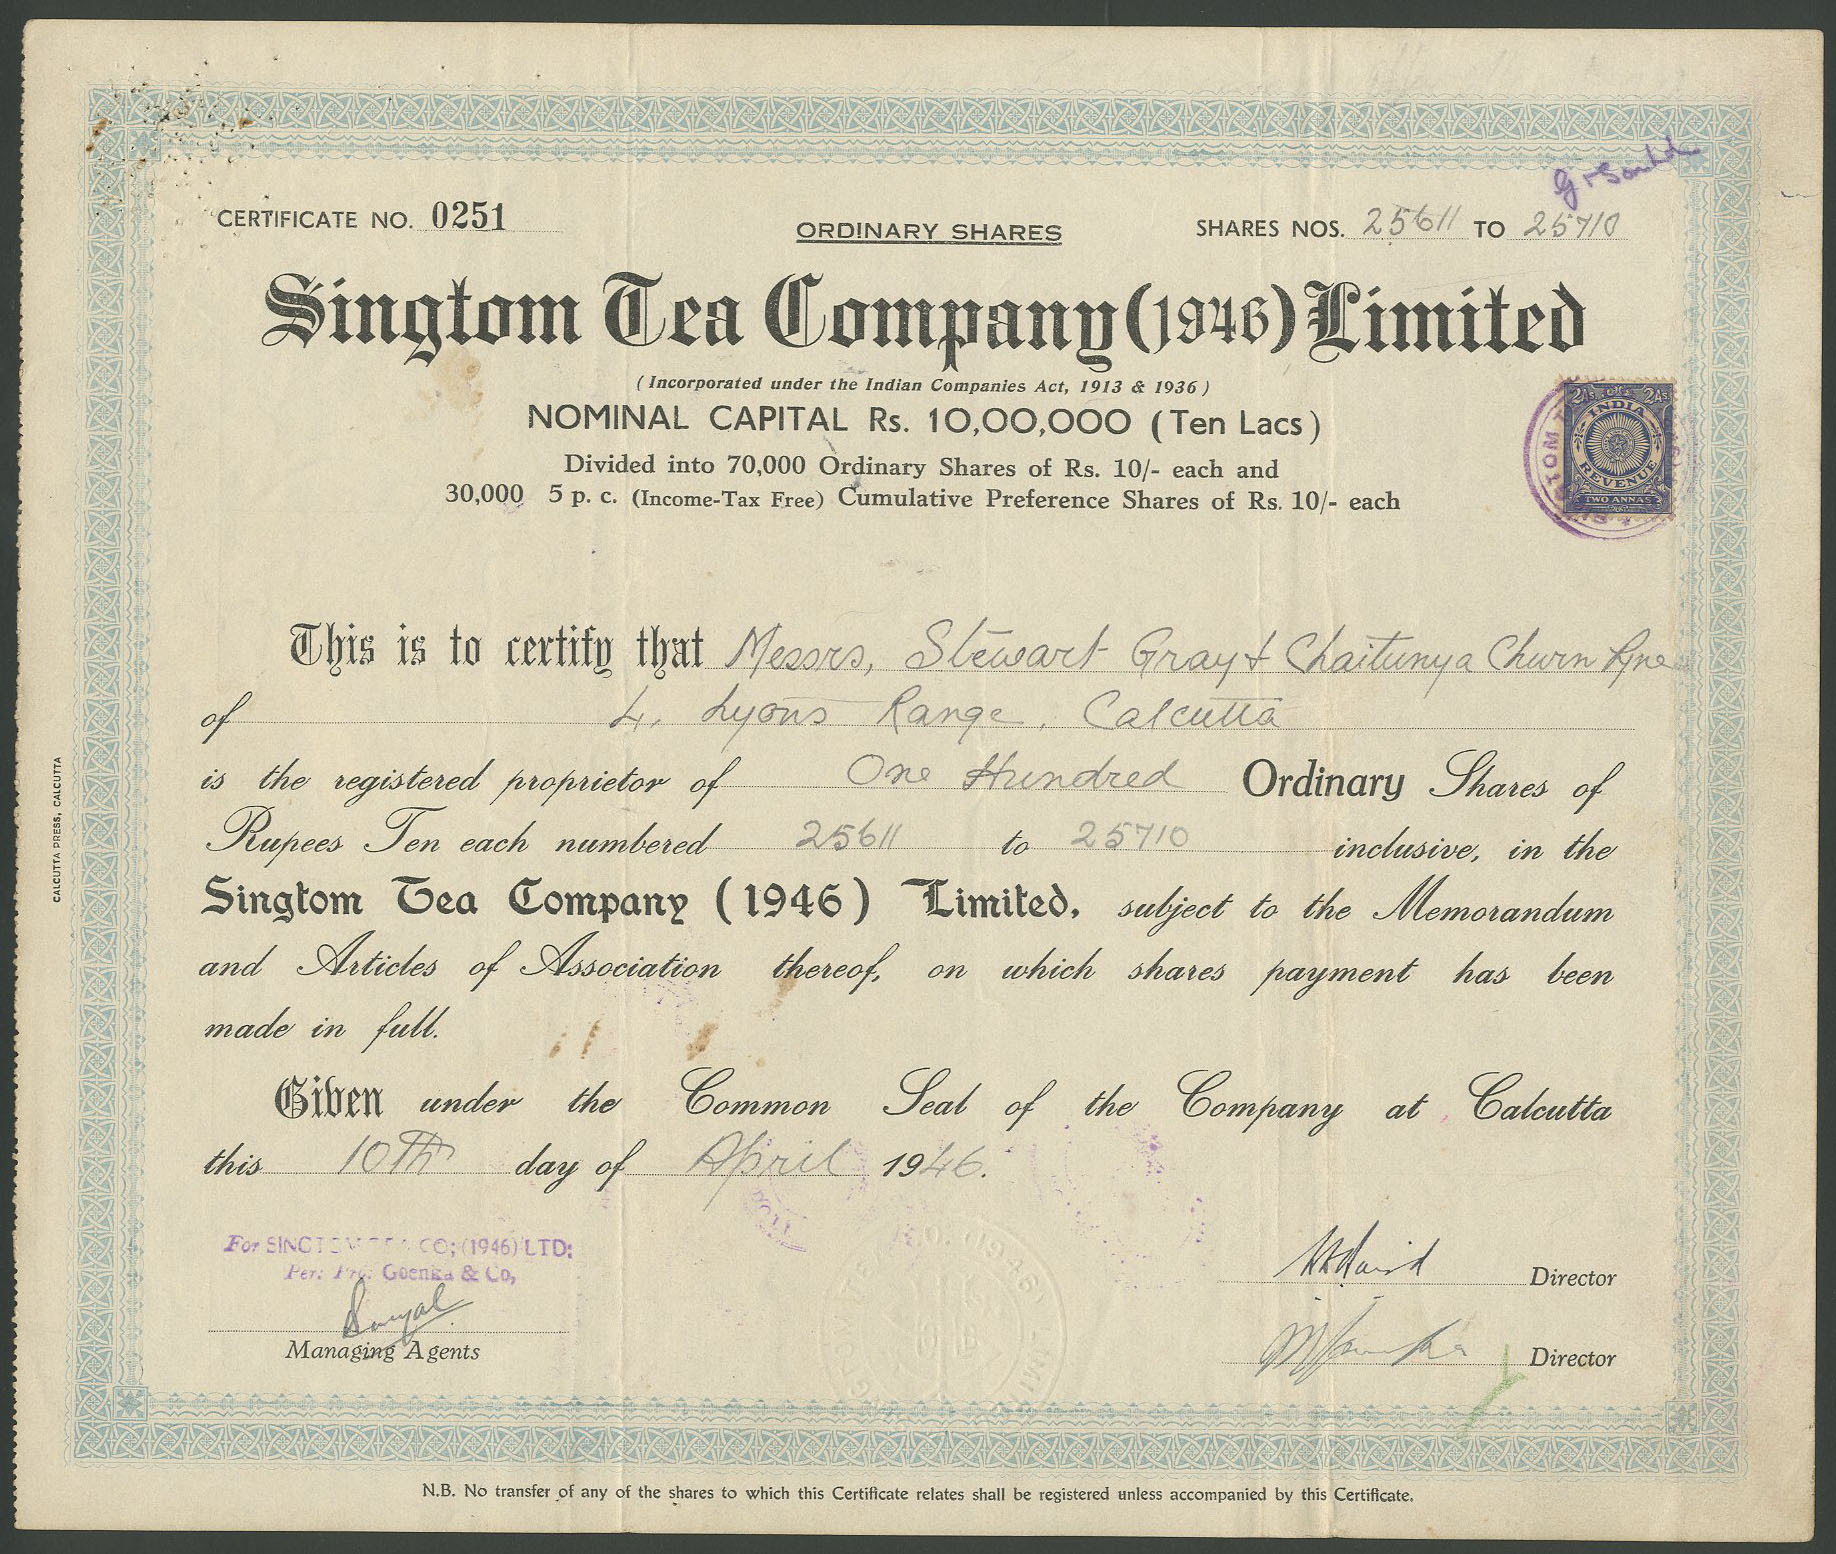 CERTIFICATE NO. 0251
ORDINARY SHARES
SHARES NOS. 25611 TO 25710
Singtom Tea Company (1946) Limited
(Incorporated under the Indian Companies Act, 1913 & 1936)
NOMINAL CAPITAL Rs. 10,00,000 (Ten Lacs)
Divided into 70,000 Ordinary Shares of Rs. 10/- each and
30,000 5 p. c. (Income-Tax Free) Cumulative Preference Shares of Rs. 10/- each
2As. 2As.
INDIA
REVENUE
TWO ANNAS
This is to certify that Messrs, Stewart Gray & Chaitunya Churn
of 4, Lyons Range, Calcutta
is the registered proprietor of One Hundred Ordinary Shares of
Rupees Ten each numbered 25611 to 25710 inclusive, in the
Singtom Tea Company (1946) Limited, subject to the Memorandum
and Articles of Association thereof, on which shares payment has been
made in full.
Given under the Common Seal of the Company at Calcutta
this 10Th day of April 1946.
For SINGTOM TEA CO; (1946) LTD:
Per: Goenka & Co,
Managing Agents
Director
Director
CALCUTTA PRESS, CALCUTTA
N.B. No transfer of any of the shares to which this Certificate relates shall be registered unless accompanied by this Certificate.